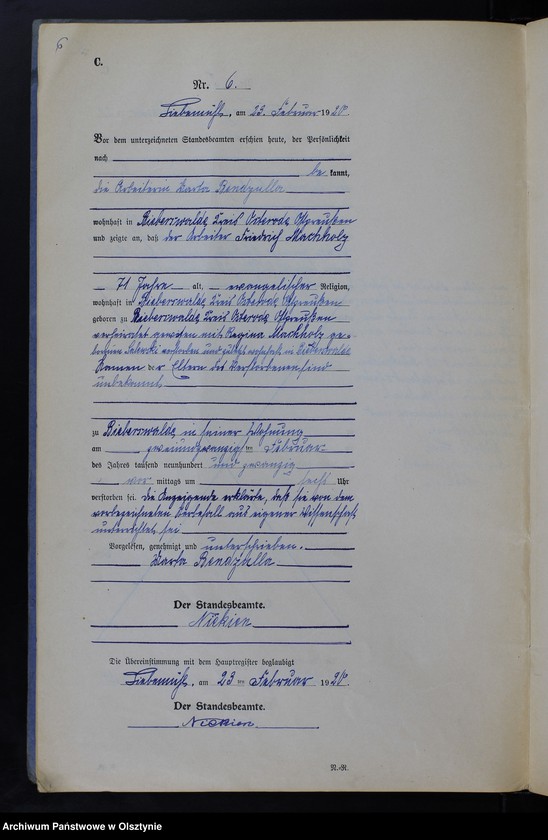 6
C.
Nr. 6.
Liebemühl, am 23. Februar 1920
Vor dem unterzeichneten Standesbeamten erschien heute, der Persönlichkeit
nach
be kannt,
die Arbeiterin Bendzulla
wohnhaft in Bieberswalde Kreis Osterode Ostpreußen
und zeigte an, daß der Arbeiter Friedrich Machholz
71 Jahre alt, evangelischer Religion,
wohnhaft in Bieberswalde Kreis Osterode Ostpreußen
geboren zu Bieberswalde Kreis Osterode Ostpreußen
verheiratet gewesen mit Regina Machholz ge-
borene verstorben und zuletzt wohnhaft in Bieberswalde
Namen der Eltern des Verstorbenen sind
unbekannt
zu Bieberswalde in seiner Wohnung
am zweiundzwanzigsten Februar
des Jahres tausend neunhundert und zwanzig
vor mittags um sechs Uhr
verstorben sei. Die Anzeigende erklärte, daß sie von dem
vorbezeichneten Sterbefall aus eigener Wissenschaft
unterrichtet sei
Vorgelesen, genehmigt und unterschrieben.
Bendzulla
Der Standesbeamte.
Nickien
Die Übereinstimmung mit dem Hauptregister beglaubigt
Liebemühl, am 23 ten Februar 1920
Der Standesbeamte.
Nickien
N.-R.
Archiwum Państwowe w Olsztynie